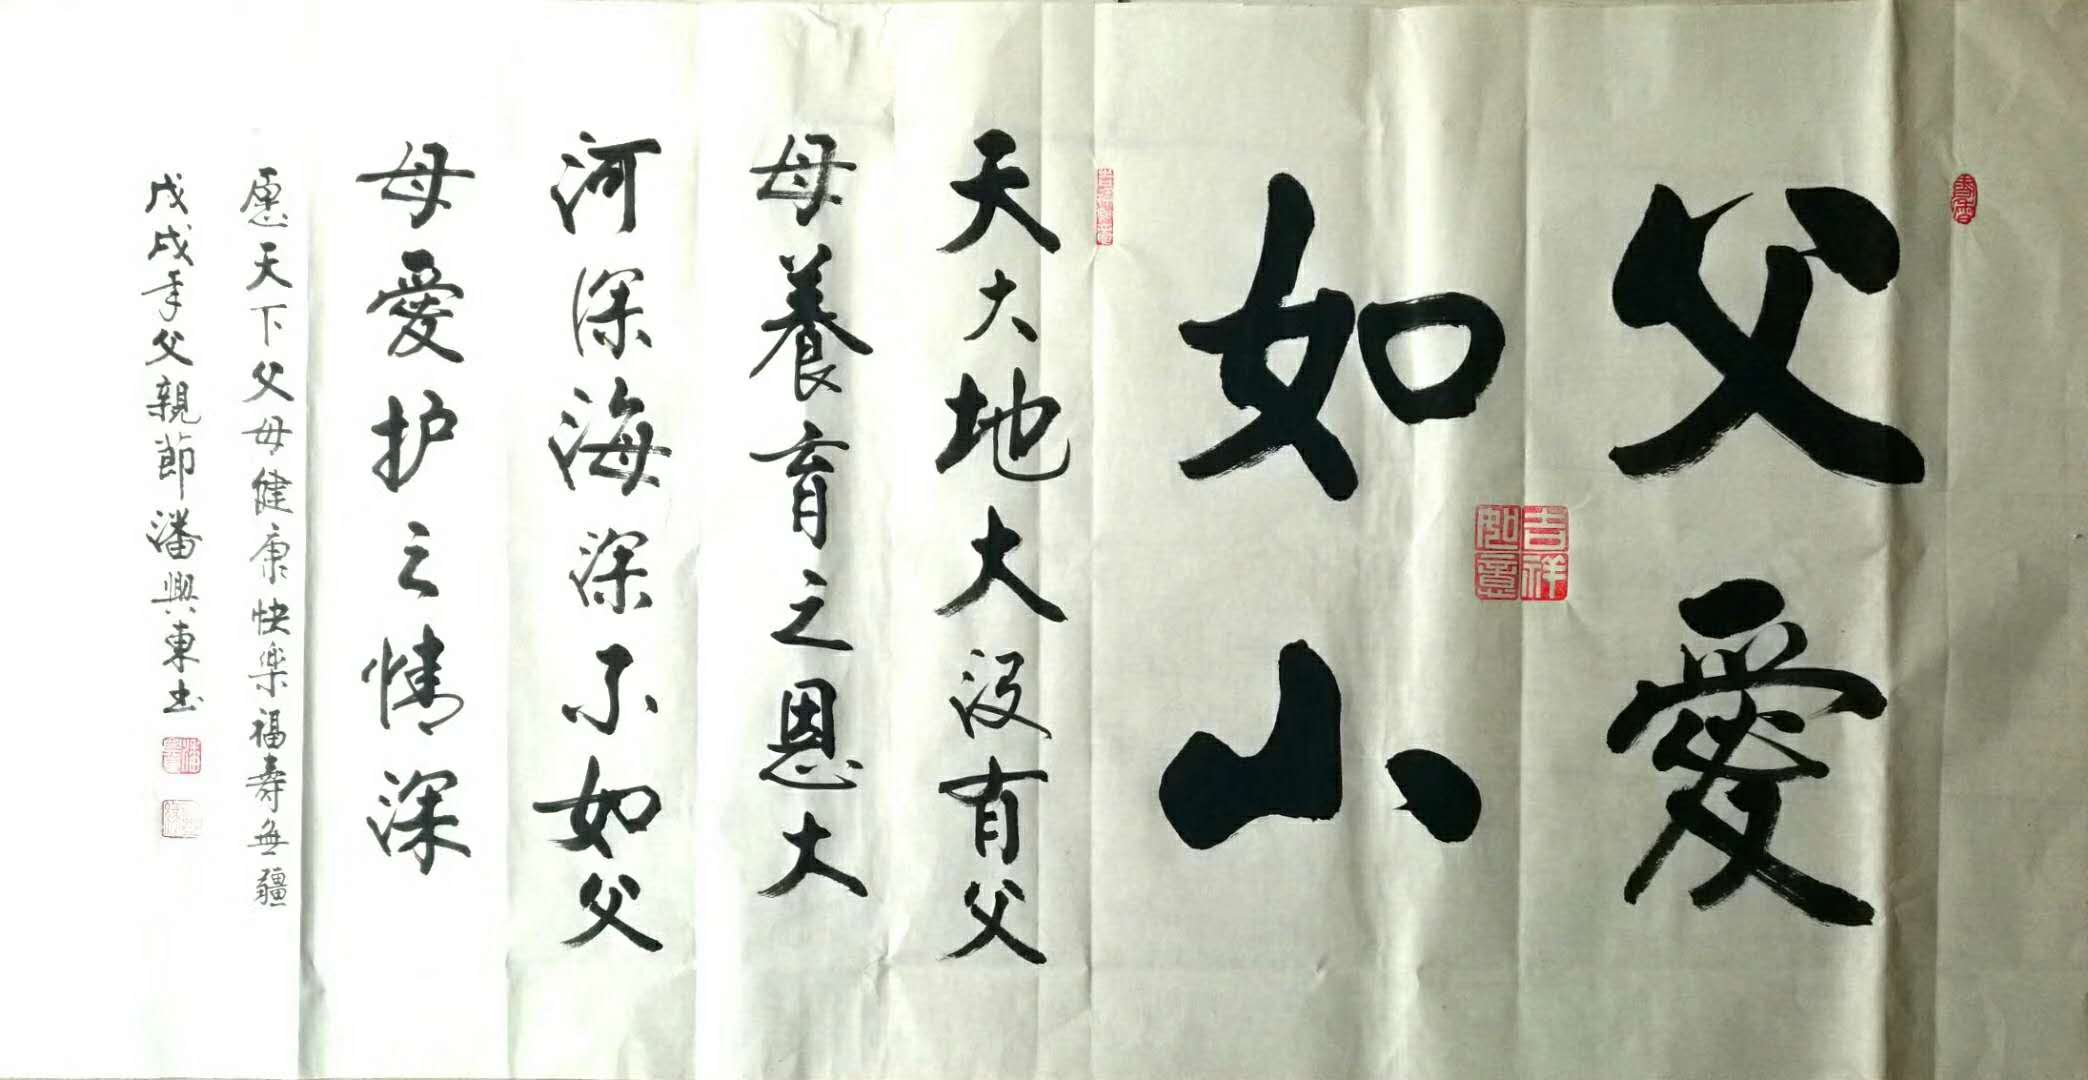 父愛
如山
天大地大没有父
母養育之恩大
河深海深不如父
母愛护之情深
愿天下父母健康快樂福寿無疆
戊戌年父親節潘興東书
吉祥
如意